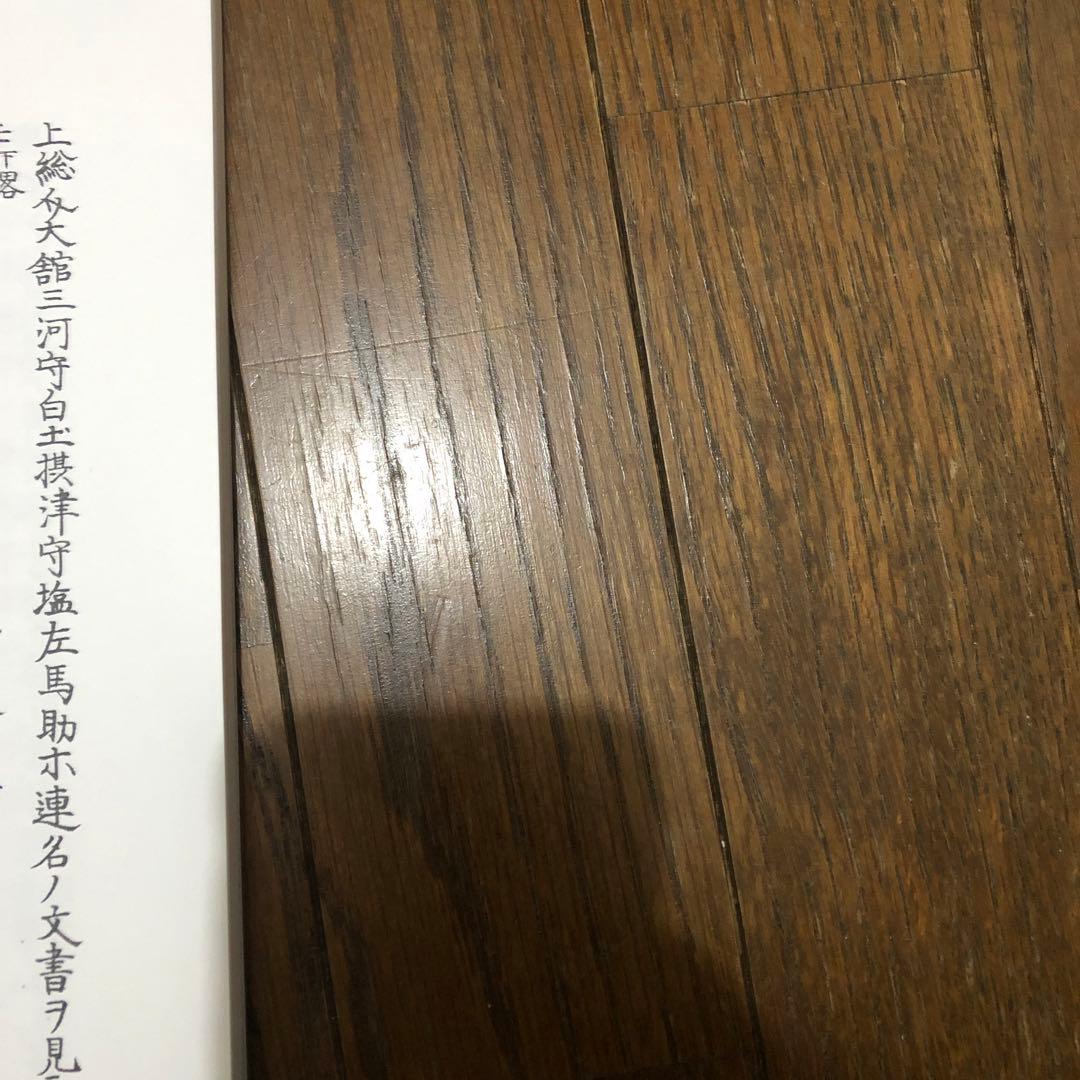 上総介大舘三河守白土摂津守塩左馬助ホ連名ノ文書ヲ見
下略